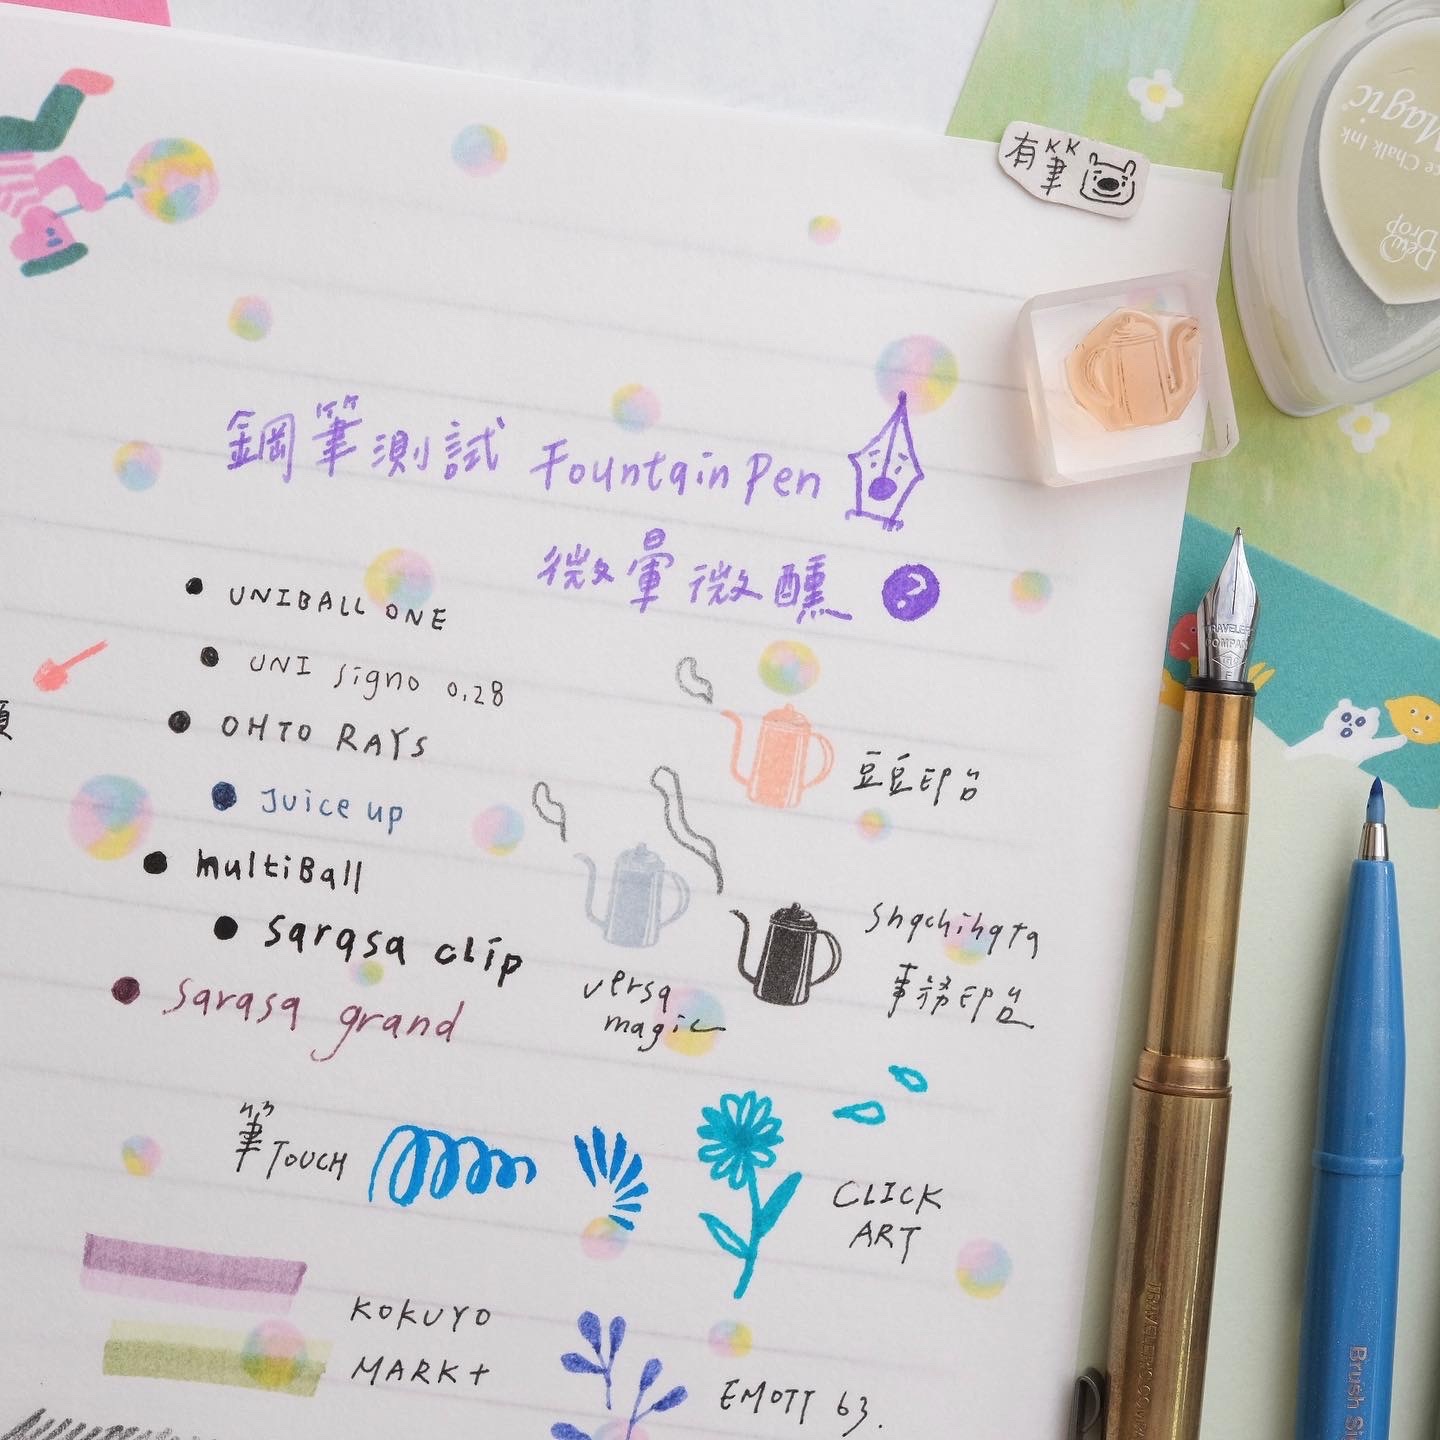 有筆
Magic
Chalk Ink
Dew
Drop
鋼筆測試 Fountain Pen
微暈微醺
UNIBALL ONE
UNI signo 0.28
OHTO RAYS
Juice up
multiBall
sarasa clip
sarasa grand
豆豆印台
versa
magic
shachihata
事務印台
筆TOUCH
CLICK
ART
KOKUYO
MARK+
EMOTT 63.
TRAVELER'S
COMPANY
F
TRAVELER'S COMPANY
Brush Si